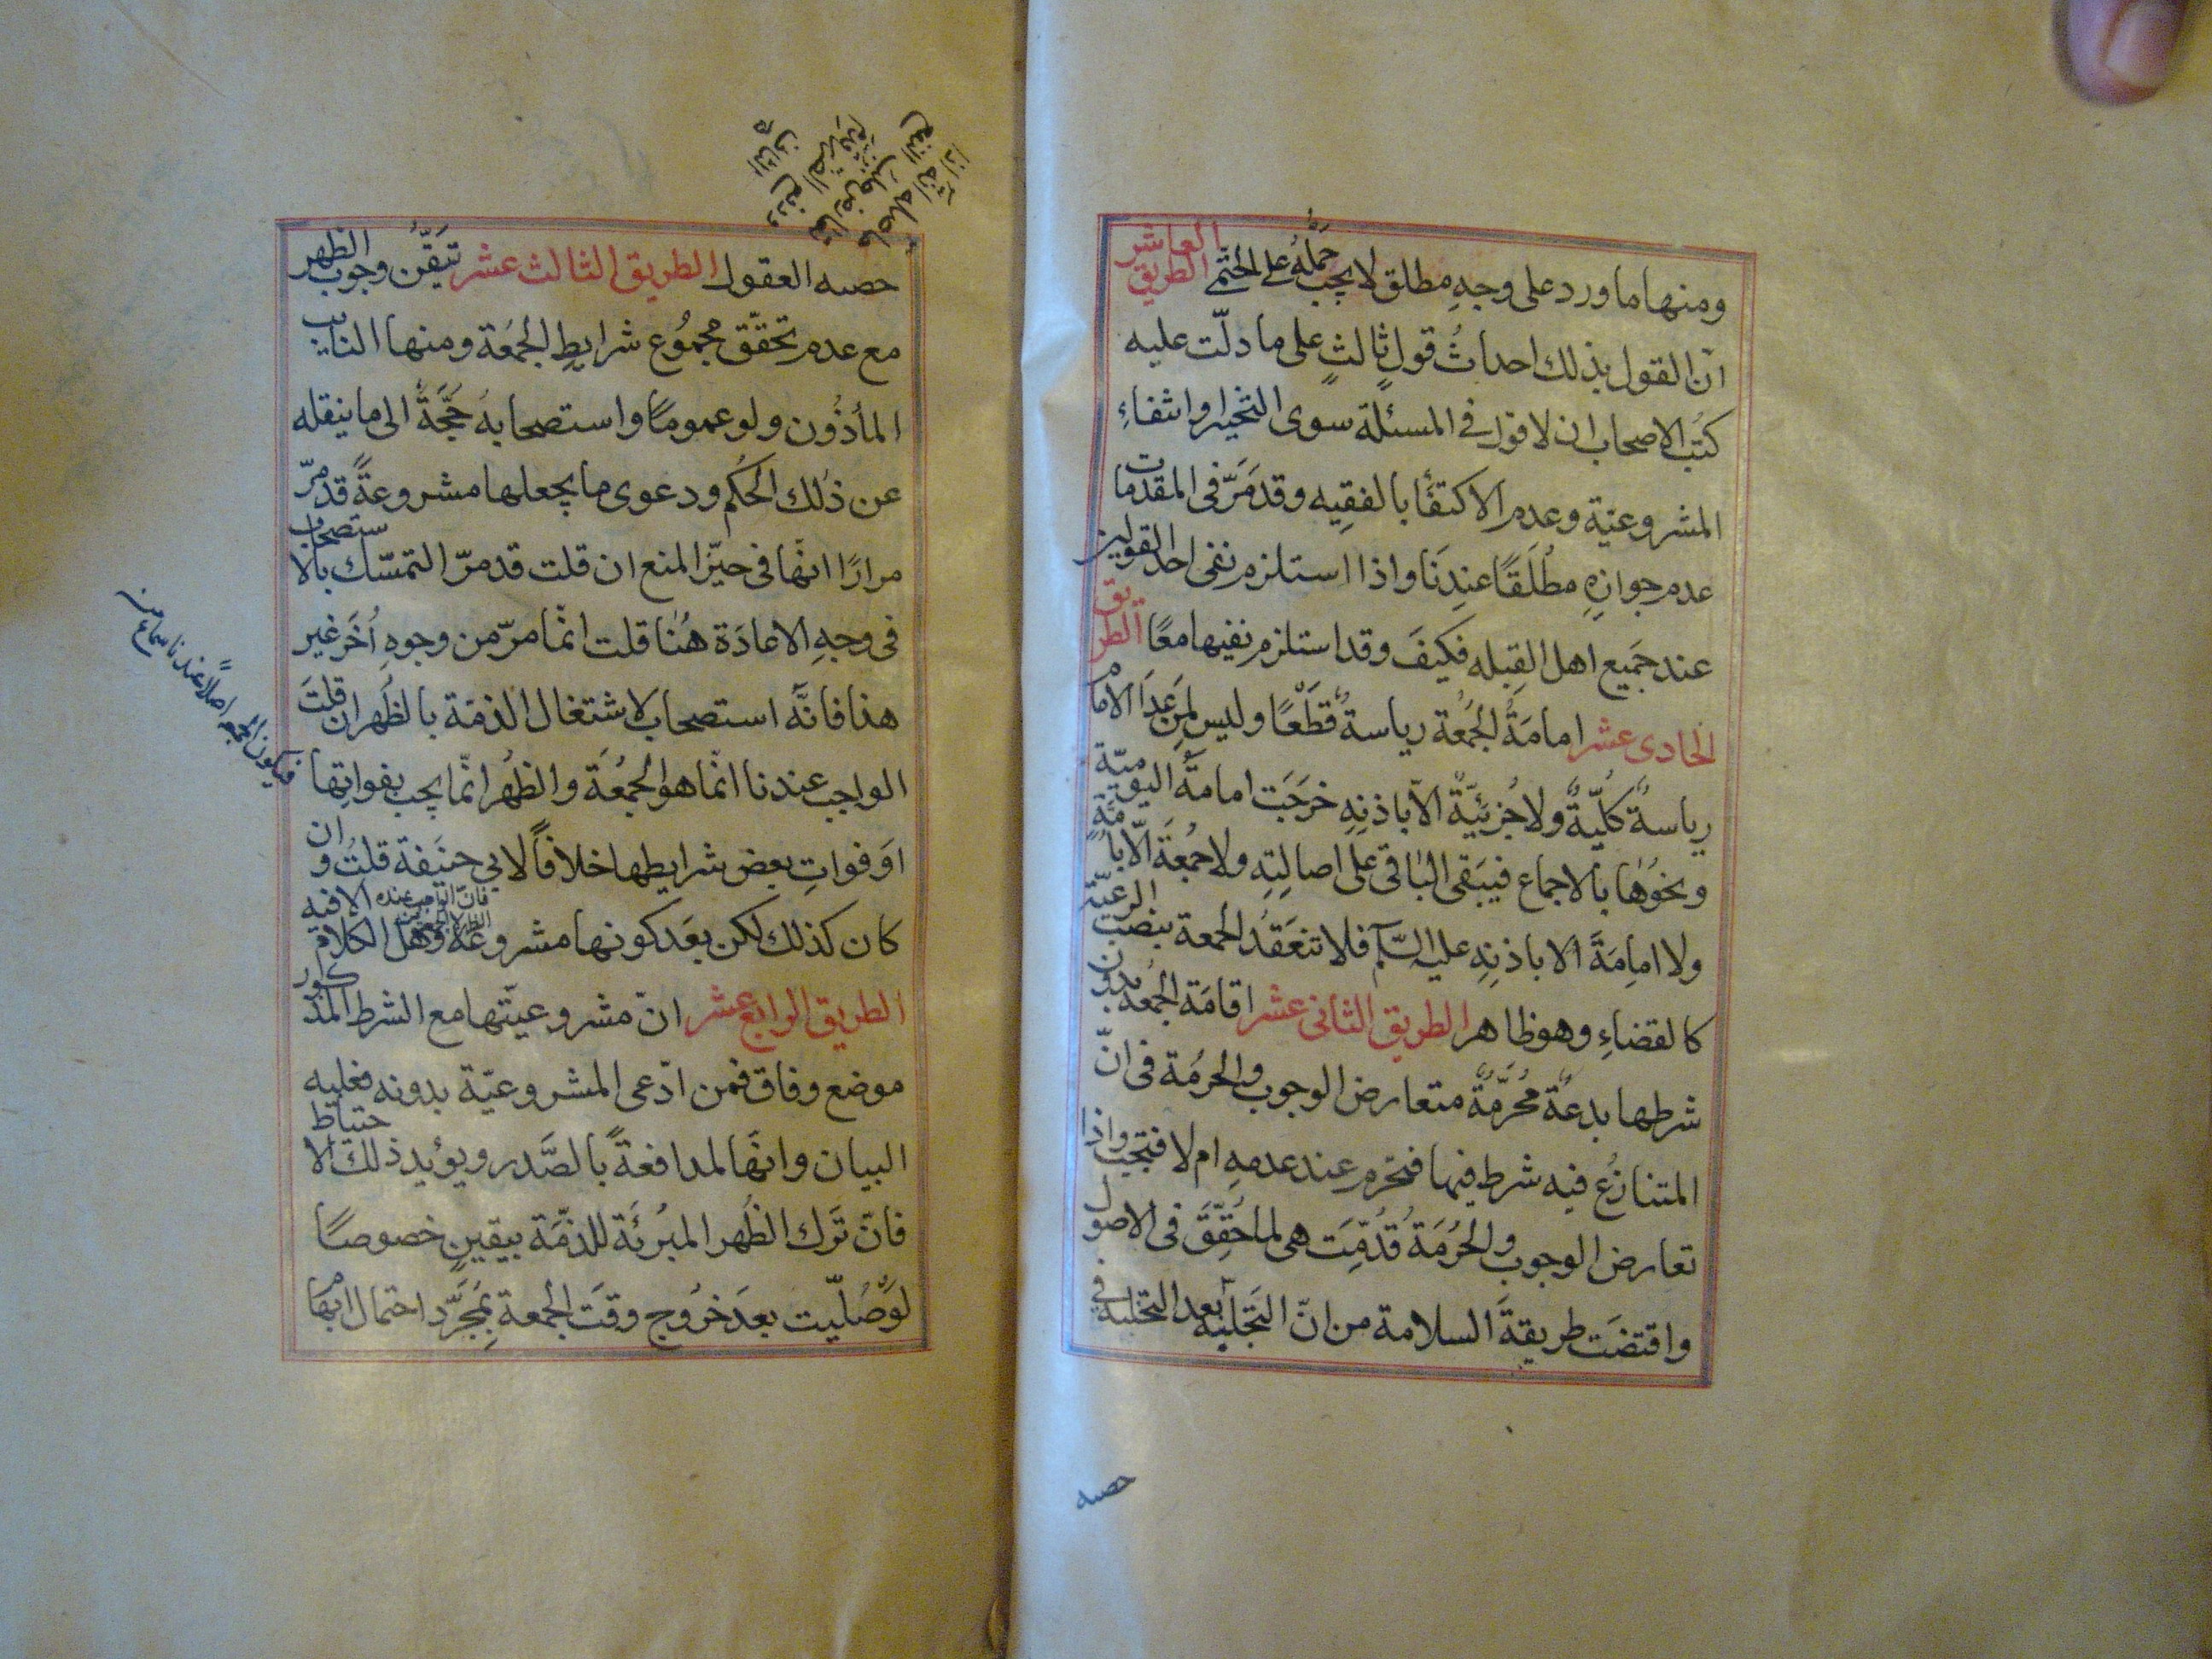 ومنها ما ورد على وجهٍ مطلق لا يجب حَملُهُ على الحتمى الطريق العاشر
انّ القول بذلك احداثُ قولٍ ثالثٍ على ما دلّت عليه
كتب الاصحاب ان لا قول فى المسئلة سوى التخيير وانتفاءِ
المشروعيّة وعدم الاكتفأ بالفقيه وقد مَرَّ فى المقدمات
عدم جوازِهِ مطلَقًا عندنا واذا استلزم نفى احد القولين
عند جَميع اهل القبله فكيفَ وقد استلزم نفيهما معًا الطريق
الحادى عشر امامَةُ الجُمُعة رياسةٌ قَطعًا وليس لِمَن عَدَا الامام
رياسةٌ كُليّةٌ ولا جُزئيّةٌ الّا باذنِهِ خَرَجَت امامةُ اليوميّة
ونحوُها بالاجماع فيبقى الباقى على اصالِتِهِ ولا جمُعَةَ الّا بامامَةٍ
ولا امامَةَ الا باذنِهِ عليه السّلم فلا تنعَقدُ الجمعة بنصب الرعيّة
كالقضاءِ وهو ظاهر الطريق الثانى عشر اقامَة الجمُعه بدون
شرطها بدعةٌ مُحَرَّمَةٌ متعارض الوجوب والحرمَة فى انّ
المتنازعُ فيه شرط فيها فتحرم عند عدمهِ ام لا فتجب واذا
تعارض الوجوب والحُرمَة قُدّمَت هى لما حُقِّقَ فى الاصول
واقتضَت طريقةَ السلامة من انّ التجليَه بعد التخليه فى
حصه
حصه العقول الطريق الثالث عشر تيَقّن وجوب الظهر
مع عدم تحقّق مجمُوع شرايط الجمُعَة ومنها النايب
المأذُون ولو عمومًا واستصحابهُ حُجَّةٌ الى ما ينقله
عن ذلك الحكم ودعوى ما يجعلها مشروعةً قد مرّ
مرارًا انّها فى حيّز المنع ان قلت قد مرّ التمسّك بالاستصحاب
فى وجهِ الاعادَة هُنا قلت انّما مرّ من وجوهٍ اُخَر غير
هذا فانّه استصحاب لاشتغال الذمّة بالظُهر ان قلتَ
الواجب عندنا انّما هو الجمعَة والظهر انّما يجب بفواتِها
اَو فواتِ بعض شرايطها خلافًا لابى حنيفة قلتُ وان
كان كذلك لكن بعَد كونها مشروعَة وهَل الكلام الا فيه
الطريق الرابع عشر انّ مشروعيّتها مع الشرط المذكور
موضع وفاق فمن ادّعى المشروعيّة بدونه فعليه
البيان وانّها لمدافعةً بالصَّدر ويؤيد ذلك الاحتياط
فانّ تَرك الظُهر المبُرئَة للذمّة بيقينٍ خصوصًا
لو صُلّيت بعدَ خرُوج وقتَ الجمعة بِمُجَرَّد احتمال ابها
فيكون الجمعه اصلاً عندنا